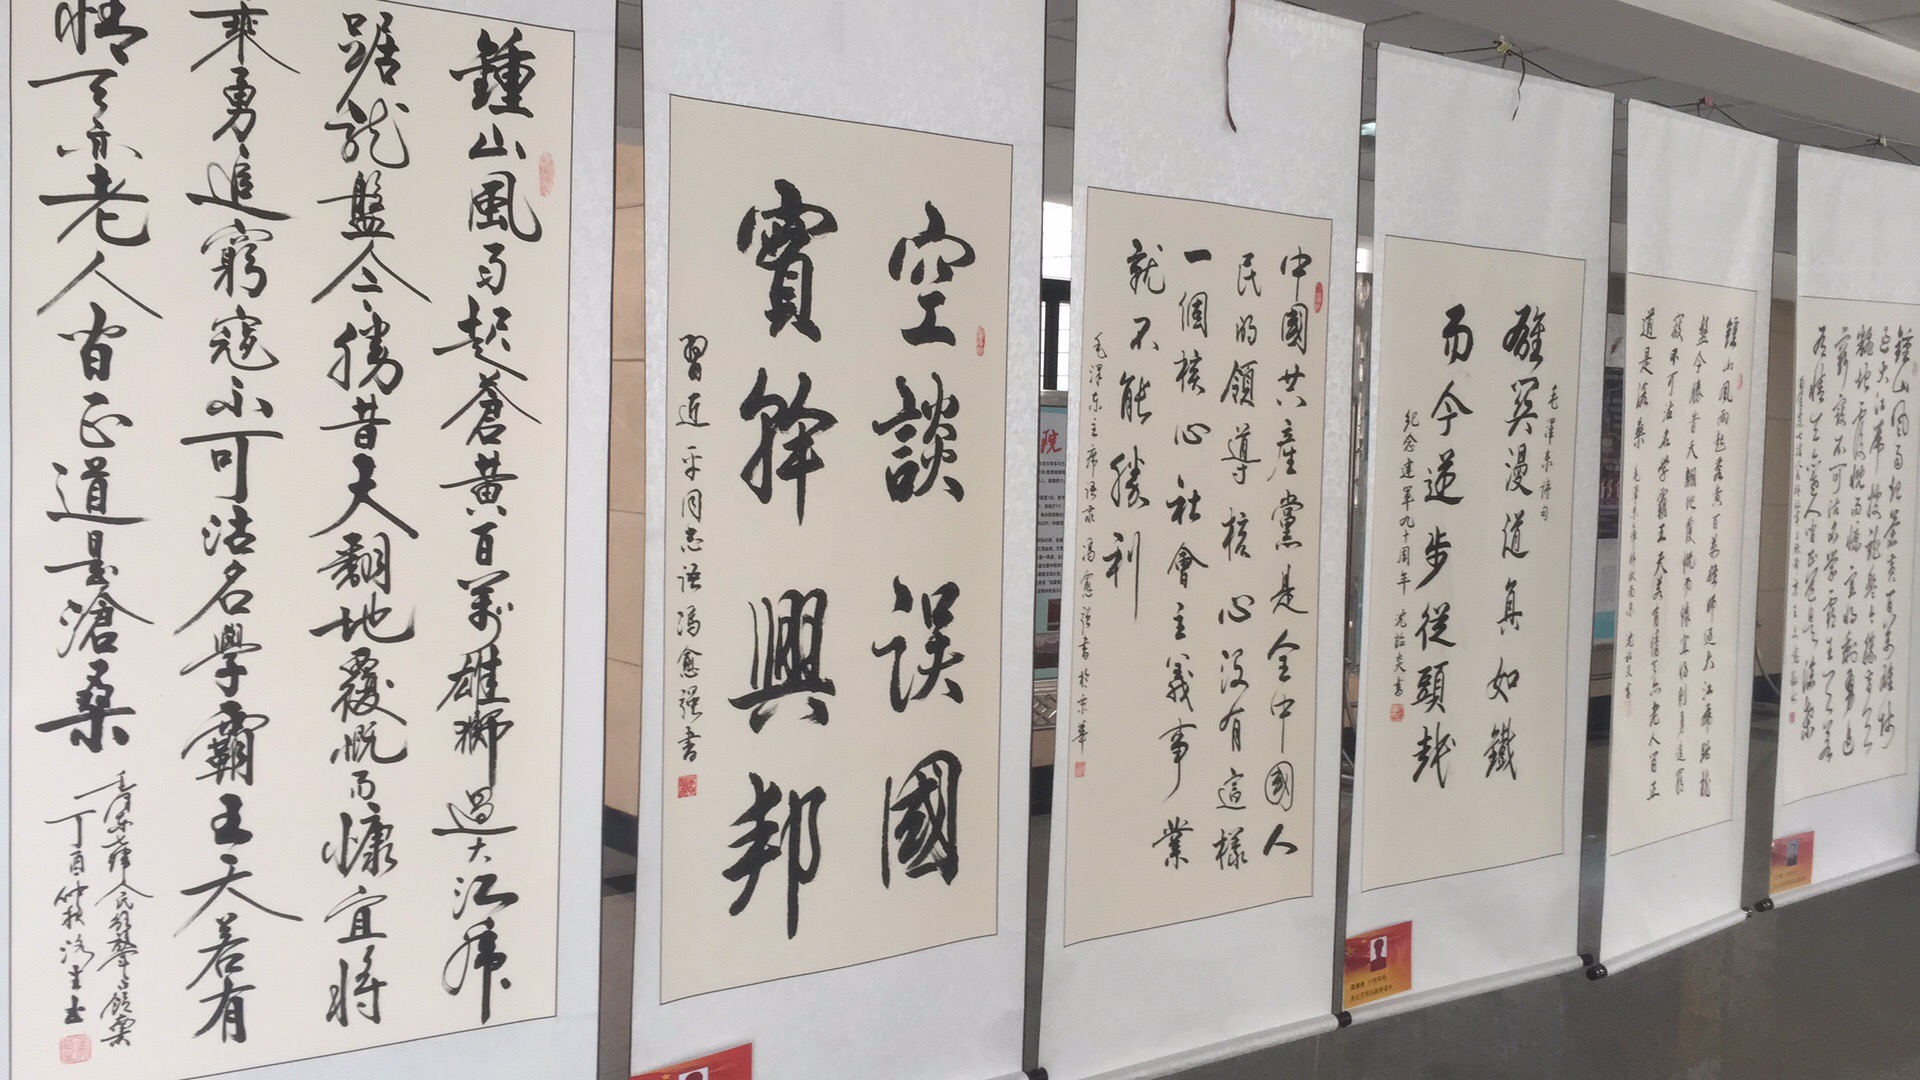 鍾山風雨起蒼黃百萬雄獅過大江虎
踞龍盤今勝昔天翻地覆慨而慷宜將
乘勇追窮寇不可沽名學霸王天若有
情天亦老人間正道是滄桑
丁酉仲秋
空談误國
實幹興邦
習近平同志语冯愈强書
中國共產黨是全中國人
民的領導核心没有這樣
一個核心社會主義事業
就不能勝利
毛澤东主席语录 冯愈强書於京華
毛澤東詩句
雄關漫道真如鐵
而今迈步從頭越
紀念建軍九十周年 沈喆英書
鍾山風雨起蒼黃百萬雄師過大江虎踞龍
盤今勝昔天翻地覆慨而慷宜將剩勇追窮
寇不可沽名學霸王天若有情天亦老人間正
道是滄桑
鍾山風雨起蒼黃百萬雄师
過大江虎踞龍盤今勝昔天
翻地覆慨而慷宜將剩勇追
窮寇不可沽名学霸王天若
有情天亦老人间正道是滄桑